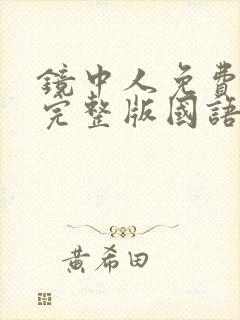 鏡中人免費
完整版國語
黃希田